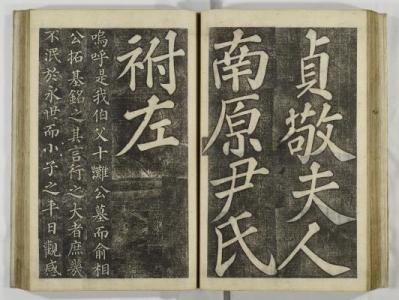 貞敬夫人
南原尹氏
祔左
嗚呼是我伯父十灘公墓而俞相
公拓基銘之其言行之大者庶幾
不泯於永世而小子之平日觀感